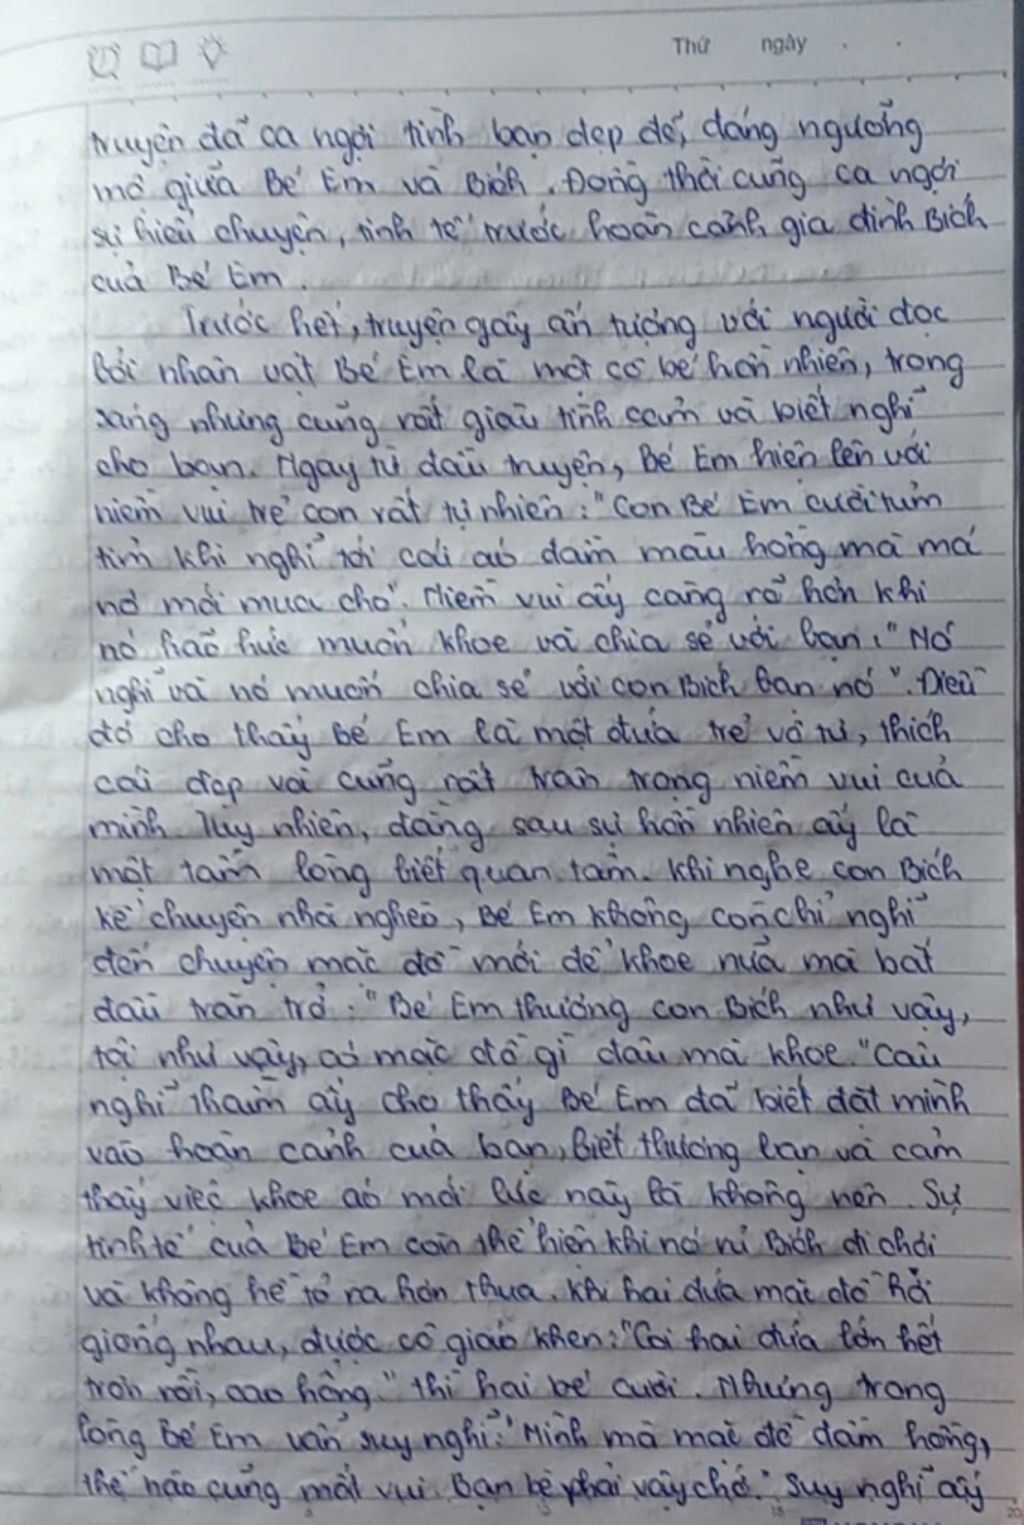 Thứ ngày
truyện đã ca ngợi tình bạn đẹp đẽ, đáng ngưỡng
mộ giữa Bé Em và Bích. Đồng thời cũng ca ngợi
sự hiểu chuyện, tinh tế trước hoàn cảnh gia đình Bích
của Bé Em.
Trước hết, truyện gây ấn tượng với người đọc
bởi nhân vật Bé Em là một cô bé hồn nhiên, trong
sáng nhưng cũng rất giàu tình cảm và biết nghĩ
cho bạn. Ngay từ đầu truyện, Bé Em hiện lên với
niềm vui trẻ con rất tự nhiên: "Con Bé Em cười tủm
tỉm khi nghĩ tới cái áo đầm màu hồng mà má
nó mới mua cho". Niềm vui ấy càng rõ hơn khi
nó háo hức muốn khoe và chia sẻ với bạn: "Nó
nghĩ và nó muốn chia sẻ với con Bích bạn nó". Điều
đó cho thấy bé Em là một đứa trẻ vô tư, thích
cái đẹp và cũng rất trân trọng niềm vui của
mình. Tuy nhiên, đằng sau sự hồn nhiên ấy là
một tấm lòng biết quan tâm. Khi nghe con Bích
kể chuyện nhà nghèo, Bé Em không còn chỉ nghĩ
đến chuyện mặc đồ mới để khoe nữa mà bắt
đầu trăn trở: "Bé Em thương con Bích như vậy,
tội như vậy, có mặc đồ gì đâu mà khoe." Câu
nghĩ thầm ấy cho thấy Bé Em đã biết đặt mình
vào hoàn cảnh của bạn, biết thương bạn và cảm
thấy việc khoe áo mới lúc này là không nên. Sự
tinh tế của Bé Em còn thể hiện khi nó rủ Bích đi chơi
và không hề tỏ ra hơn thua. Khi hai đứa mặc đồ hơi
giống nhau, được cô giáo khen: "Coi hai đứa lớn hết
trơn rồi, cao hồng." thì hai bé cười. Nhưng trong
lòng Bé Em vẫn suy nghĩ: "Mình mà mặc đồ đầm hồng,
thế nào cũng mất vui. Bạn bè phải vậy chớ." Suy nghĩ ấy